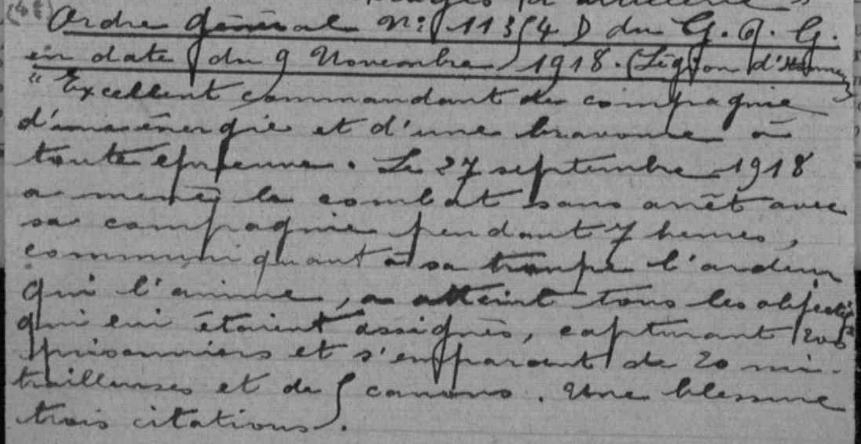 Ordre général N° 11354 D du G.Q.G.
en date du 9 Novembre 1918. (Légion d'Honneur)
"Excellent commandant de compagnie
d'une énergie et d'une bravoure à
toute épreuve. Le 27 septembre 1918
a mené le combat sans arrêt avec
sa compagnie pendant 7 heures,
communiquant à sa troupe l'ardeur
qui l'anime, a atteint tous les objectifs
qui lui étaient assignés, capturant 200
prisonniers et s'emparant de 20 mi-
trailleuses et de canons. Une blessure
trois citations.